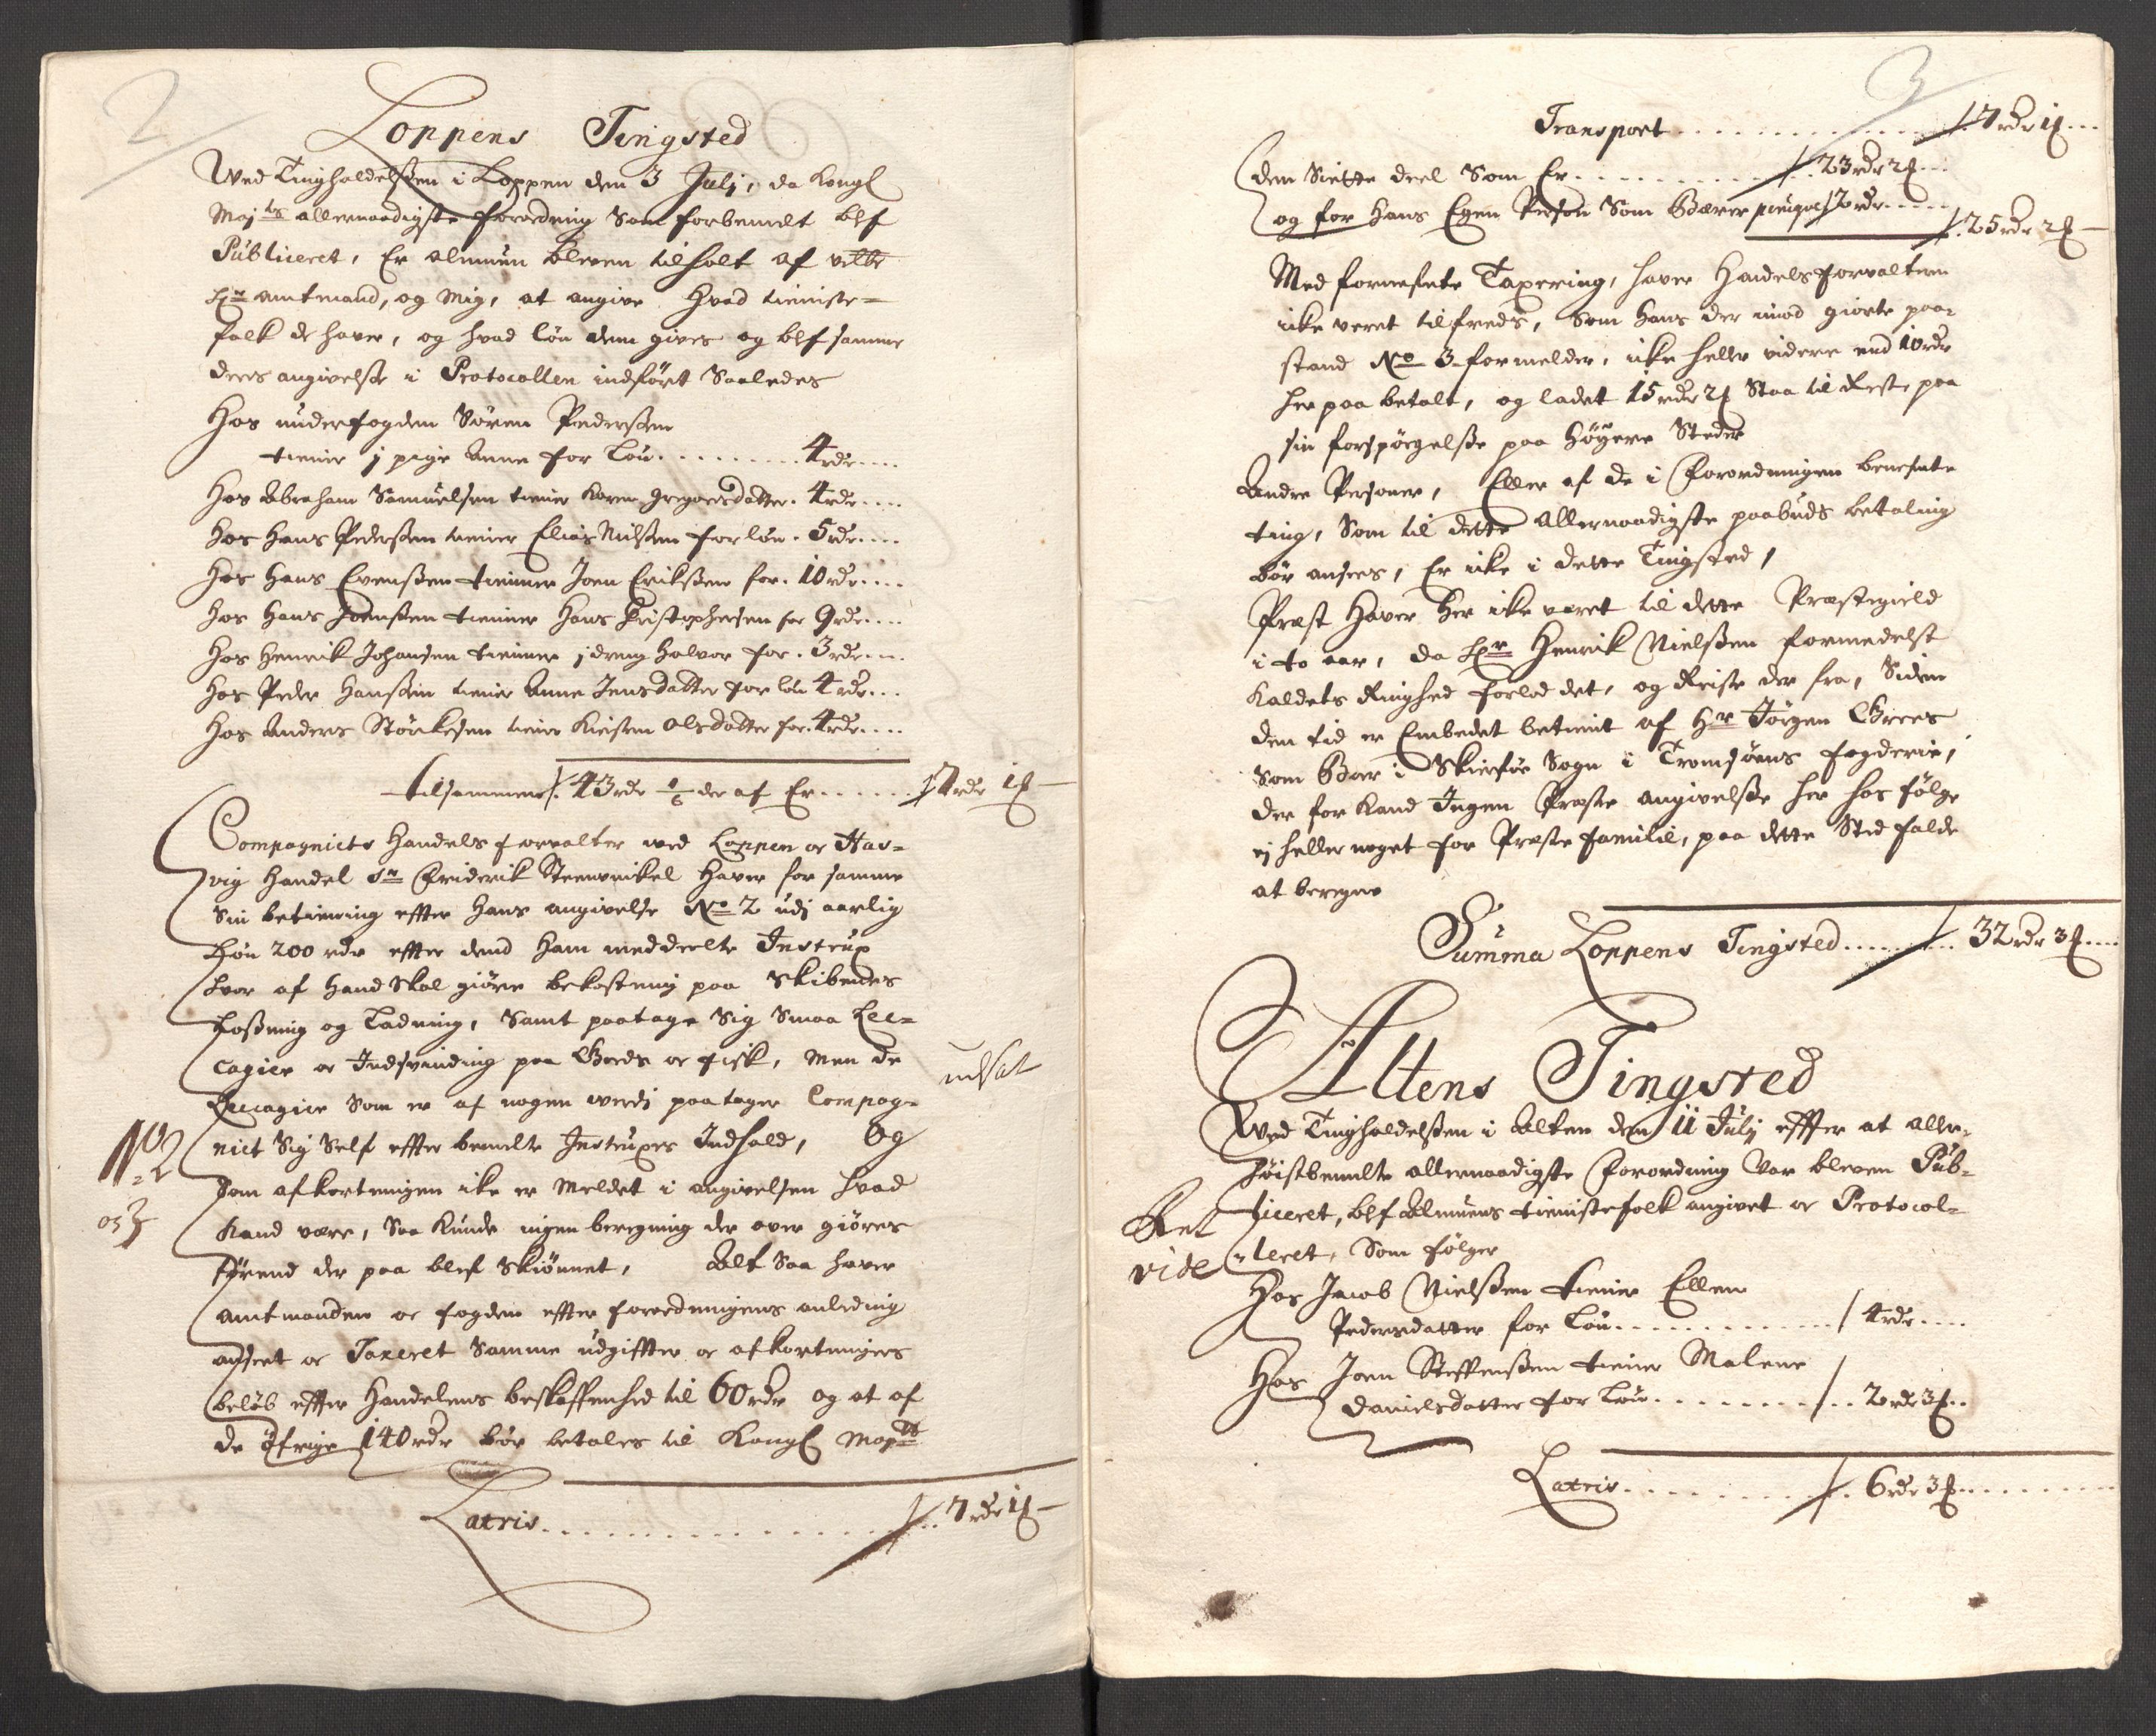 2
Loppens Tingsted
Wed Tingholdelssen i Loppen den 3 Julj, da Kongl
Maj:ts allernaadigste forordning Som forbemelt blef
Publiceret, Er almuen bleven tilholt af velbr
Hr amtmand, og Mig, at angive Hvad tieniste-
folk de haver, og hvad løn dem gives og blef samme
deres angivelsse i Protocollen indført Saaledes
Hos underfogden Sören Pedersen
tiener j pige Anne for Löu ........ 4rdr ....
Hos Abraham Samuelsen tiener Karen Gregorsdatter . 4rdr ....
Hos Hans Pedersen tiener Elias Nilssen for løn . 5rdr ....
Hos Hans Evenssen tienner Joen Erikssen for . 10rdr ....
Hos Hans Joenssen tienner Hans Christophersen for 9rdr ....
Hos Henrik Johansen tienner j dreng Halvor for . 3rdr ....
Hos Peder Hanssen tiener Anne Jensdatter for løn 4rdr ...
Hos Anders Störkesen tiener Kirsten Olsdatter for . 4rdr ....
tilsammen /. 43rdr 1/6 der af Er ...... / 7rdr 1ß —
Compagniets Handels forvalter wed Loppen oc Has-
vig Handel Sr Friderik Steenwinkel Haver for samme
Sin betiening efter Hans angivelse No 2 udj aarlig
Løn 200 rdr efter dend Ham meddeelte Instrux
hvor af Hand Skal giøre bekostning paa Skibenes
Losning og Ladning, Samt paatage Sig Smaa Lec-
cagier oc Indsvinding paa Gods oc fisk, Men de
Leccagier Som er af nogen werdj paatager Compag-
niet Sig Self efter bemelte Instruxes Indhold, Og
Som afkortningen ike er Meldet i angivelsen hvad
Kand være, Saa Kunde ingen beregning der over giöres
förend der paa blef Skiönnet, Alt Saa haver
Amtmanden oc fogden efter forordningens anledning
anseet oc Taxeret Samme udgiffter oc afkortningers
beløb efter Handelens beskaffenhed til 60rdr og at af
de öfrige 140rdr bør betales til Kongl Maytt
udsat
No 2
os 3
Latris .................. /.. 7rdr 1ß —
3
Transport ................ /. 7rdr 1ß ...
den Siette deel Som Er ........... /. 23rdr 2ß ...
og for Hans Egen Person Som bærer peruque / 2rdr ...... /. 25rdr 2ß —
Med forneffnte Taxering, haver Handels forvalteren
icke veret tilfreds, Som Hans der imod giorte paa-
stand No 3 formelder, icke heller videre end 10rdr
her paa betalt, og ladet 15rdr 2ß Staa til Reste paa
sin forspörgelsse paa Höyere Steder
Andre Personer, Eller af de i Forordningen beneffnte
ting, Som til dette Allernaadigste paabuds betaling
bör ansees, Er icke i dette Tingsted,
Præst Haver her icke været til dette Præstegield
i to aar, da Hr Henrik Nielssen formedelst
Kaldets Ringhed forlod det, og Reiste der fra, Siden
den tid er Embedet betient af Hr Jörgen Grees
Som Boer i Skierföe Sogn i Tromsöens fogderie,
der for Kand Ingen Præste angivelsse her hos fölge
ej heller noget for Præste familie, paa dette Sted falde
at beregne
Summa Loppens Tingsted ...... /... 32rdr 3ß ....
Altens Tingsted
Wed Tingholdelssen i Alten den 11 Julj effter at aller-
høistbemelte allernaadigste Forordning Var bleven Pub-
liceret, blef Almuens tienistefolk angivet oc Protocol-
leret, Som fölger
Hos Jacob Nielssen tiener Ellen
Pedersdatter for Löu .............. / 4rdr ....
Hos Joen Steffenssen tiener Malene
Danielsdatter for Löu .......... /.. 2rdr 3ß ..
vide
Latris ............ /.. 6rdr 3ß ........